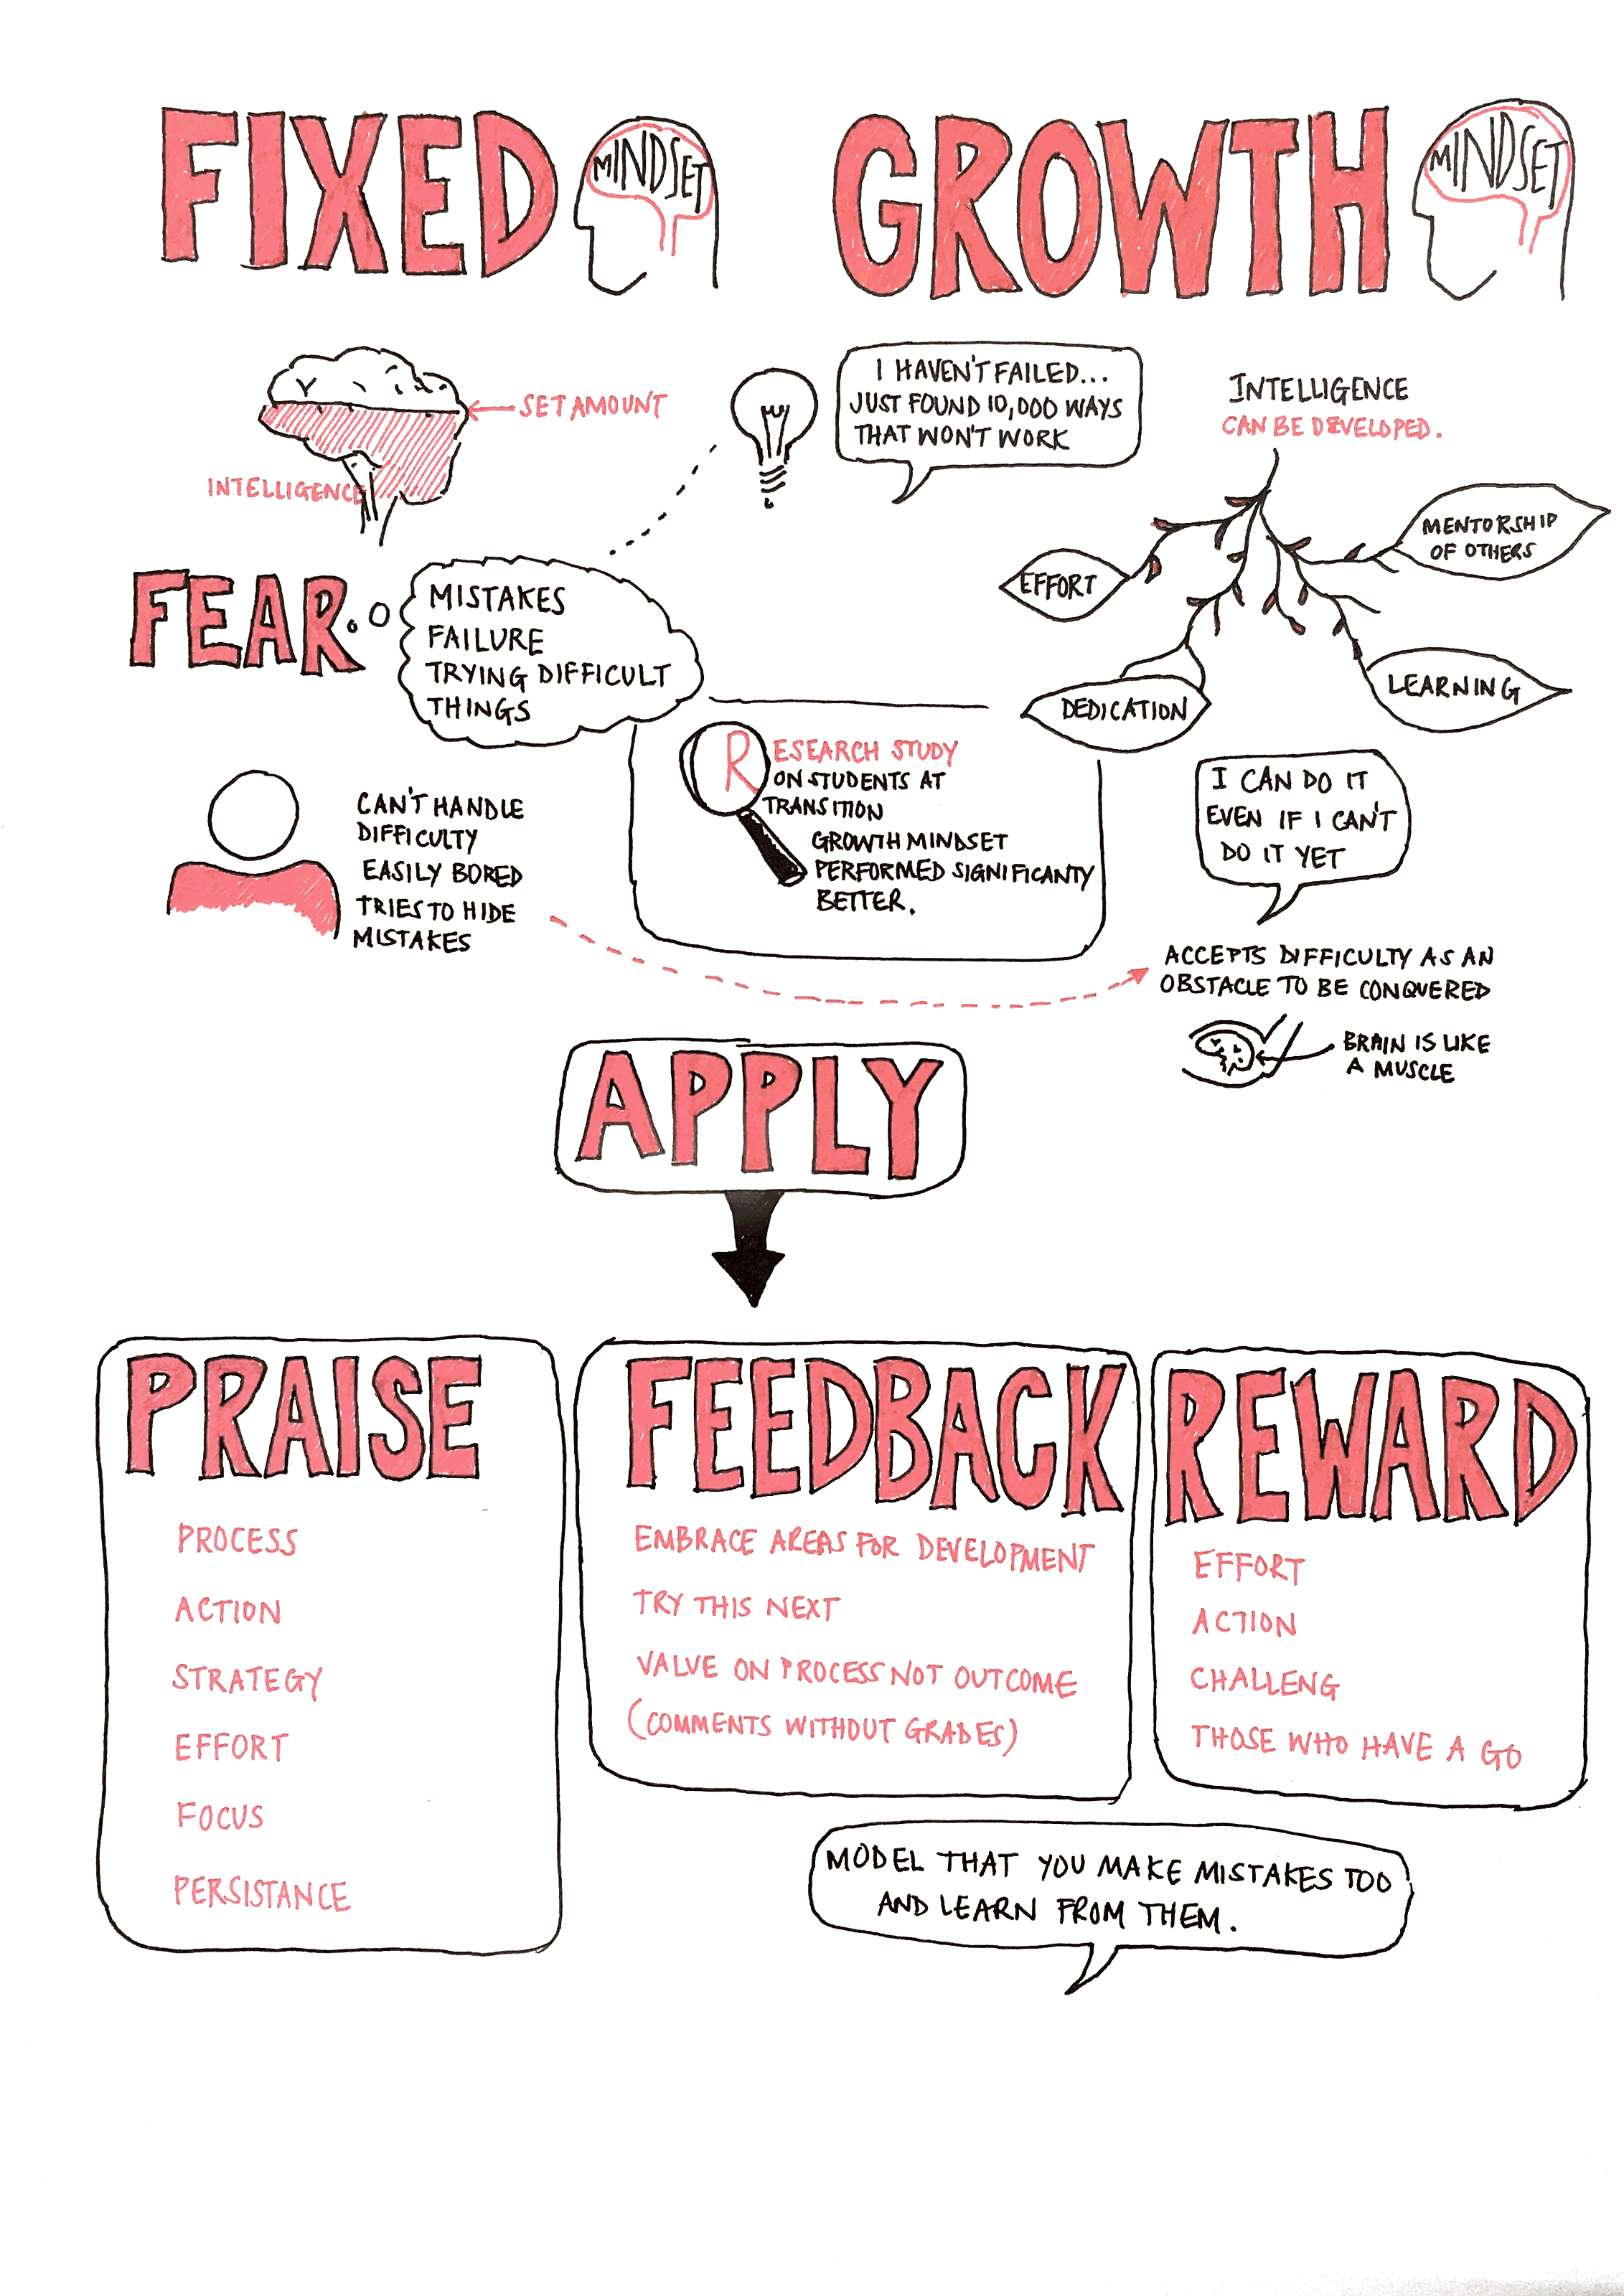 FIXED
MINDSET
GROWTH
MINDSET
SET AMOUNT
INTELLIGENCE
I HAVEN'T FAILED...
JUST FOUND 10,000 WAYS
THAT WON'T WORK
INTELLIGENCE
CAN BE DEVELOPED.
MENTORSHIP
OF OTHERS
EFFORT
LEARNING
DEDICATION
FEAR
MISTAKES
FAILURE
TRYING DIFFICULT
THINGS
RESEARCH STUDY
ON STUDENTS AT
TRANSITION
GROWTH MINDSET
PERFORMED SIGNIFICANTY
BETTER.
CAN'T HANDLE
DIFFICULTY
EASILY BORED
TRIES TO HIDE
MISTAKES
I CAN DO IT
EVEN IF I CAN'T
DO IT YET
ACCEPTS DIFFICULTY AS AN
OBSTACLE TO BE CONQUERED
BRAIN IS LIKE
A MUSCLE
APPLY
PRAISE
PROCESS
ACTION
STRATEGY
EFFORT
FOCUS
PERSISTANCE
FEEDBACK
EMBRACE AREAS FOR DEVELOPMENT
TRY THIS NEXT
VALVE ON PROCESS NOT OUTCOME
(COMMENTS WITHOUT GRADES)
REWARD
EFFORT
ACTION
CHALLENG
THOSE WHO HAVE A GO
MODEL THAT YOU MAKE MISTAKES TOO
AND LEARN FROM THEM.